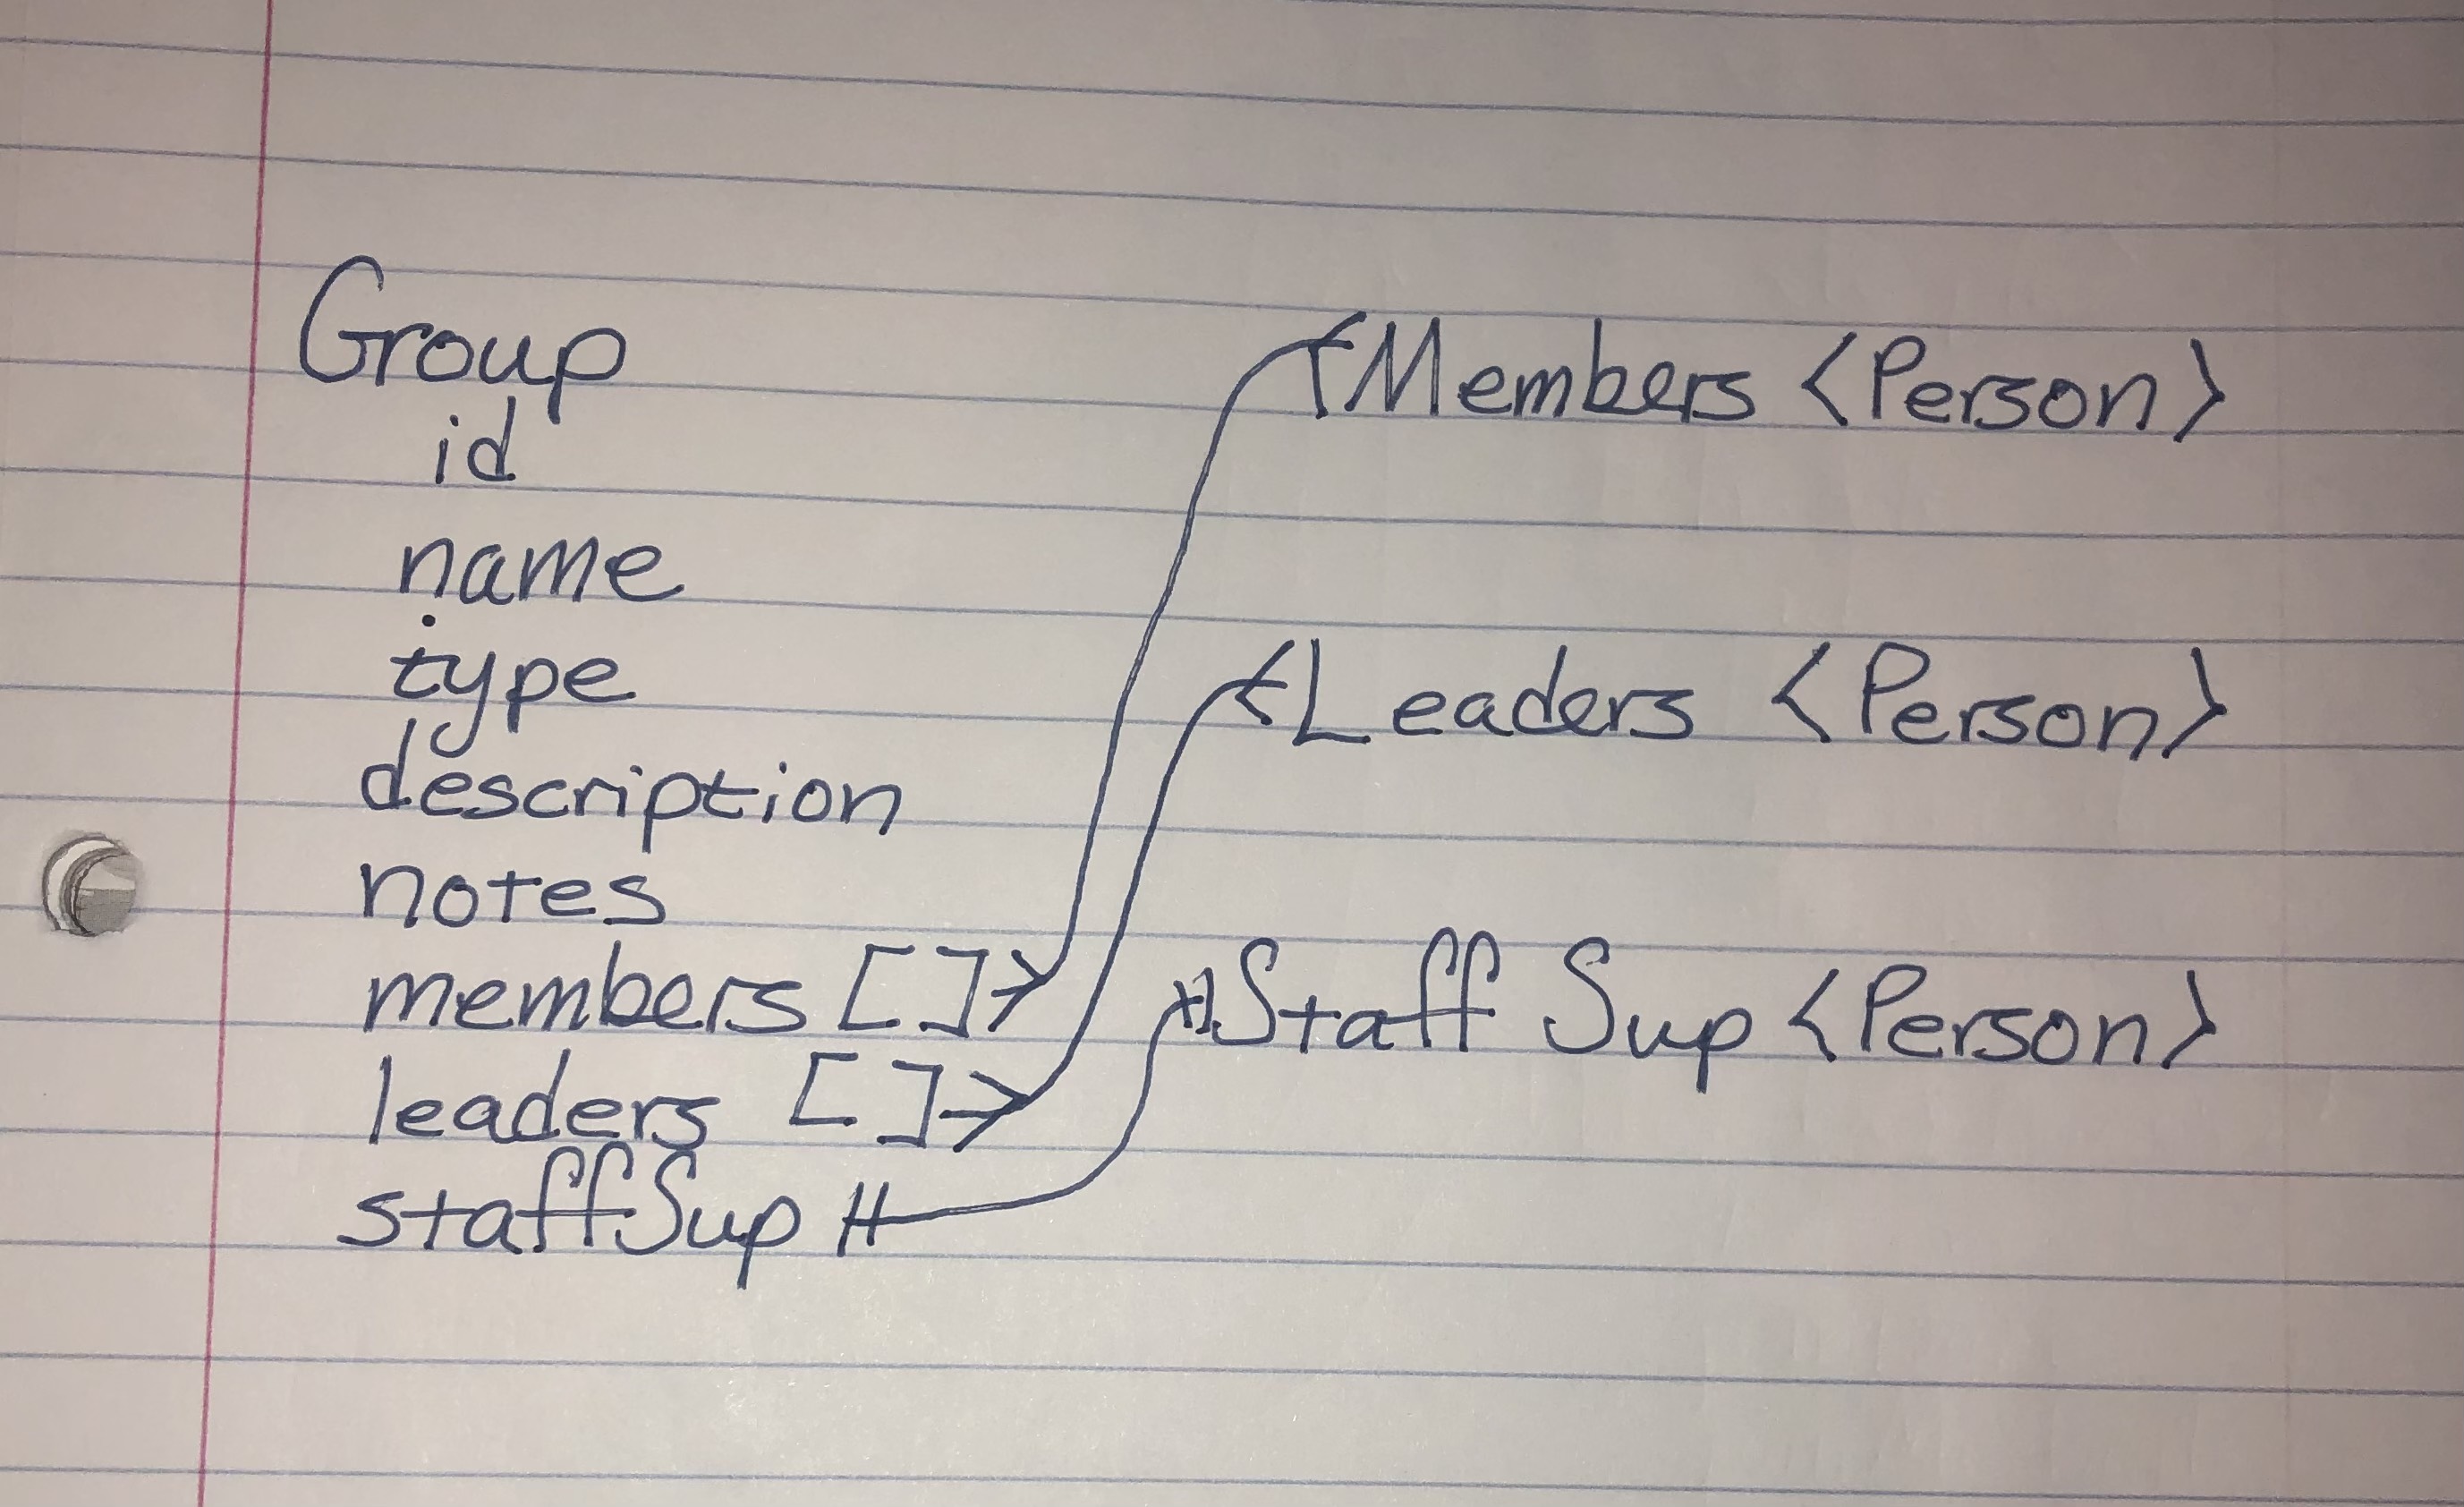 Group
id
name
type
description
notes
members []
leaders []
staffSup
Members <Person>
Leaders <Person>
Staff Sup <Person>